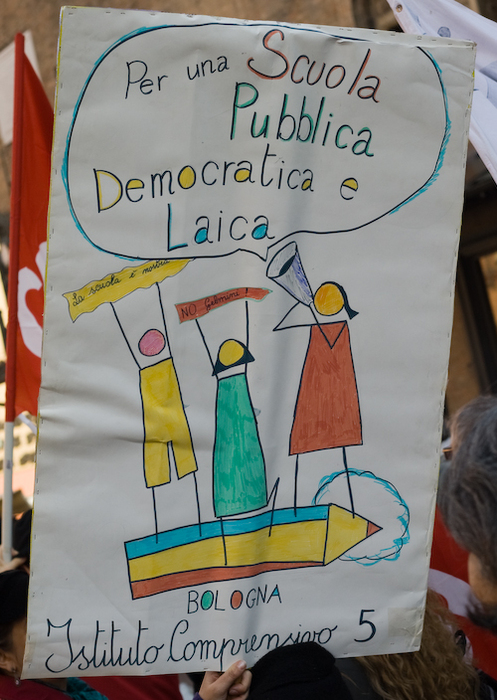 Per una Scuola
Pubblica
Democratica e
Laica
La scuola è nostra
NO
BOLOGNA
Istituto Comprensivo 5